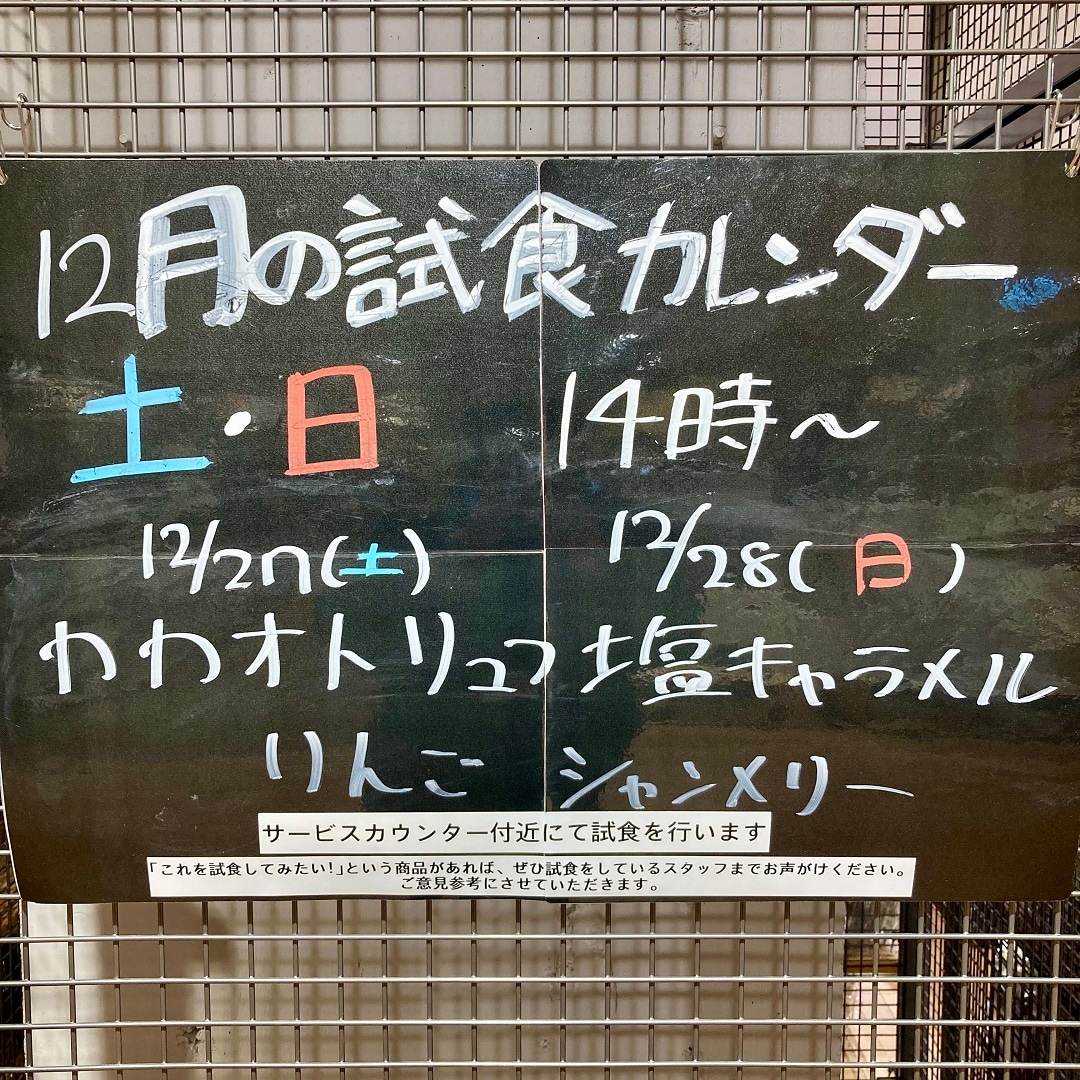 12月の試食カレンダー
土・日 14時～
12/27(土) 12/28(日)
カカオトリュフ 塩キャラメル
りんご シャンメリー
サービスカウンター付近にて試食を行います
「これを試食してみたい!」という商品があれば、ぜひ試食をしているスタッフまでお声がけください。
ご意見参考にさせていただきます。